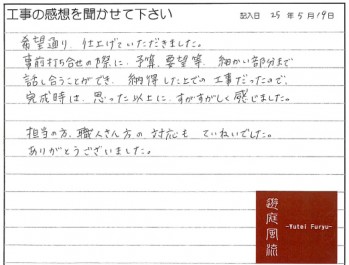 工事の感想を聞かせて下さい
記入日 25年5月19日
希望通り、仕上げていただきました。
事前打ち合せの際に、予算、要望等、細かい部分まで
話し合うことができ、納得した上での工事だったので、
完成時は、思った以上に、すがすがしく感じました。
担当の方、職人さん方の対応も ていねいでした。
ありがとうございました。
遊庭風流
-Yutei Furyu-